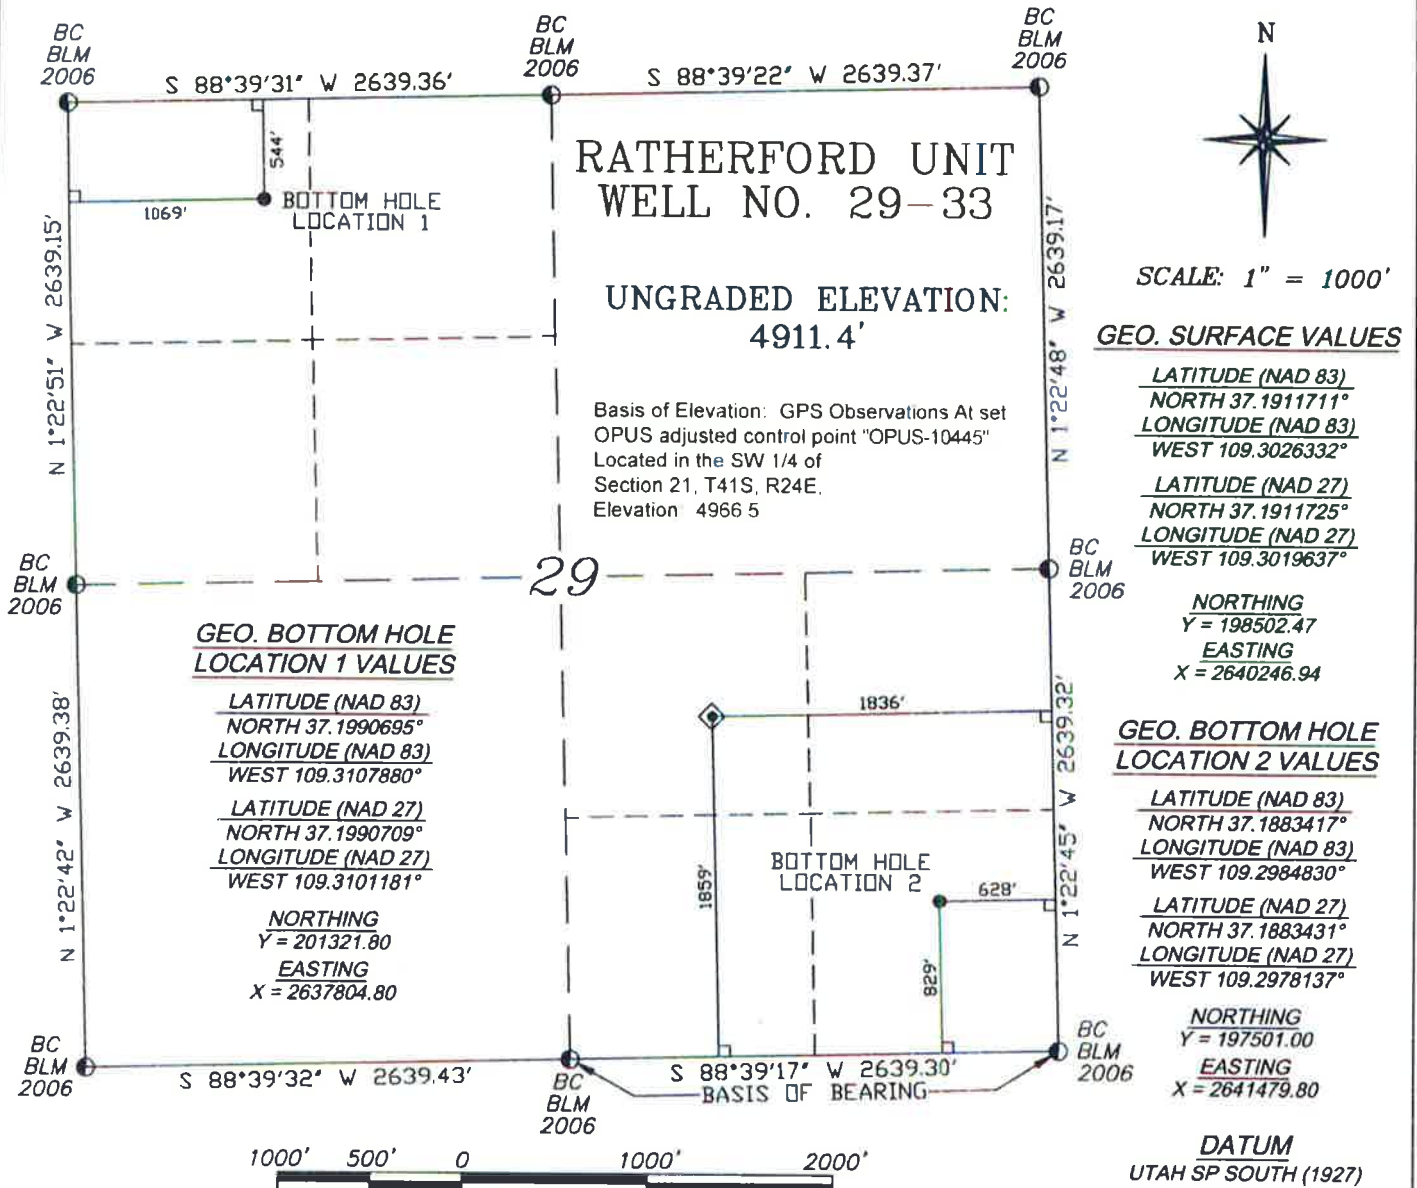 BC
BLM
2006
BC
BLM
2006
BC
BLM
2006
N
S 88°39'31" W 2639.36'
S 88°39'22" W 2639.37'
544'
1069'
BOTTOM HOLE
LOCATION 1
RATHERFORD UNIT
WELL NO. 29-33
UNGRADED ELEVATION:
4911.4'
Basis of Elevation: GPS Observations At set
OPUS adjusted control point "OPUS-10445"
Located in the SW 1/4 of
Section 21, T41S, R24E,
Elevation 4966 5
N 1°22'51" W 2639.15'
N 1°22'48" W 2639.17'
SCALE: 1" = 1000'
GEO. SURFACE VALUES
LATITUDE (NAD 83)
NORTH 37.1911711°
LONGITUDE (NAD 83)
WEST 109.3026332°
LATITUDE (NAD 27)
NORTH 37.1911725°
LONGITUDE (NAD 27)
WEST 109.3019637°
NORTHING
Y = 198502.47
EASTING
X = 2640246.94
BC
BLM
2006
29
BC
BLM
2006
GEO. BOTTOM HOLE
LOCATION 1 VALUES
LATITUDE (NAD 83)
NORTH 37.1990695°
LONGITUDE (NAD 83)
WEST 109.3107880°
LATITUDE (NAD 27)
NORTH 37.1990709°
LONGITUDE (NAD 27)
WEST 109.3101181°
NORTHING
Y = 201321.80
EASTING
X = 2637804.80
N 1°22'42" W 2639.38'
1836'
1859'
BOTTOM HOLE
LOCATION 2
628'
829'
N 1°22'45" W 2639.32'
GEO. BOTTOM HOLE
LOCATION 2 VALUES
LATITUDE (NAD 83)
NORTH 37.1883417°
LONGITUDE (NAD 83)
WEST 109.2984830°
LATITUDE (NAD 27)
NORTH 37.1883431°
LONGITUDE (NAD 27)
WEST 109.2978137°
NORTHING
Y = 197501.00
EASTING
X = 2641479.80
BC
BLM
2006
S 88°39'32" W 2639.43'
BC
BLM
2006
S 88°39'17" W 2639.30'
BASIS OF BEARING
BC
BLM
2006
DATUM
UTAH SP SOUTH (1927)
1000' 500' 0 1000' 2000'